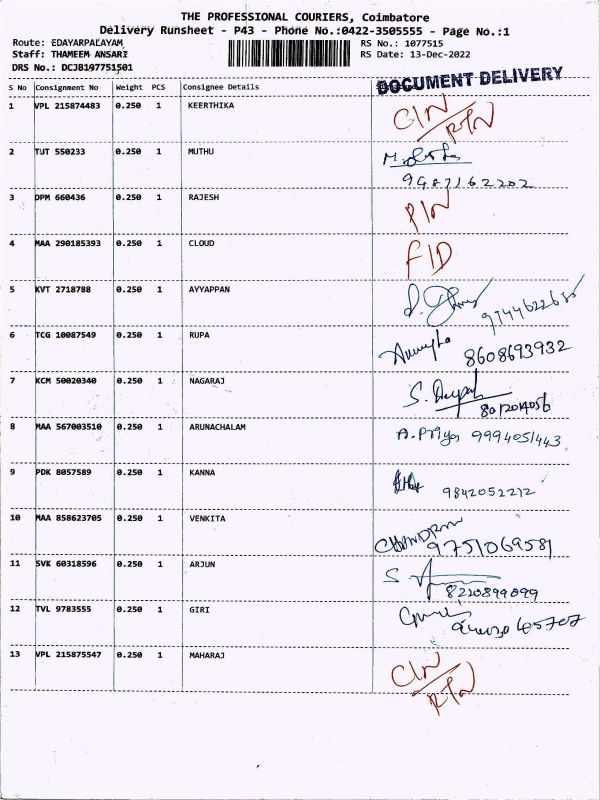 THE PROFESSIONAL COURIERS, Coimbatore
Delivery Runsheet - P43 - Phone No.:0422-3505555 - Page No.:1
Route: EDAYARPALAYAM RS No.: 1077515
Staff: THAMEEM ANSARI RS Date: 13-Dec-2022
DRS No.: DCJB197751501
DOCUMENT DELIVERY
S No Consignment No Weight PCS Consignee Details
1 VPL 215874483 0.250 1 KEERTHIKA C/N
RTN
2 TUT 550233 0.250 1 MUTHU
9487162202
3 DPM 660436 0.250 1 RAJESH P/N
4 MAA 290185393 0.250 1 CLOUD F/D
5 KVT 2718788 0.250 1 AYYAPPAN
6 TCG 10087549 0.250 1 RUPA 8608693932
7 KCM 50020340 0.250 1 NAGARAJ
8 MAA 567003510 0.250 1 ARUNACHALAM A. Priya 9994051443
9 PDK 8057589 0.250 1 KANNA 9842052212
10 MAA 858623705 0.250 1 VENKITA
9751069581
11 SVK 60318596 0.250 1 ARJUN
8220899099
12 TVL 9783555 0.250 1 GIRI
13 VPL 215875547 0.250 1 MAHARAJ C/N
RTN